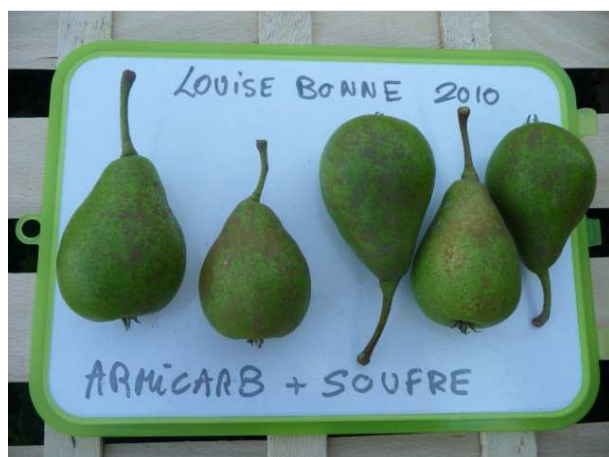 LOUISE BONNE 2010
ARMiCARB + SOUFRE